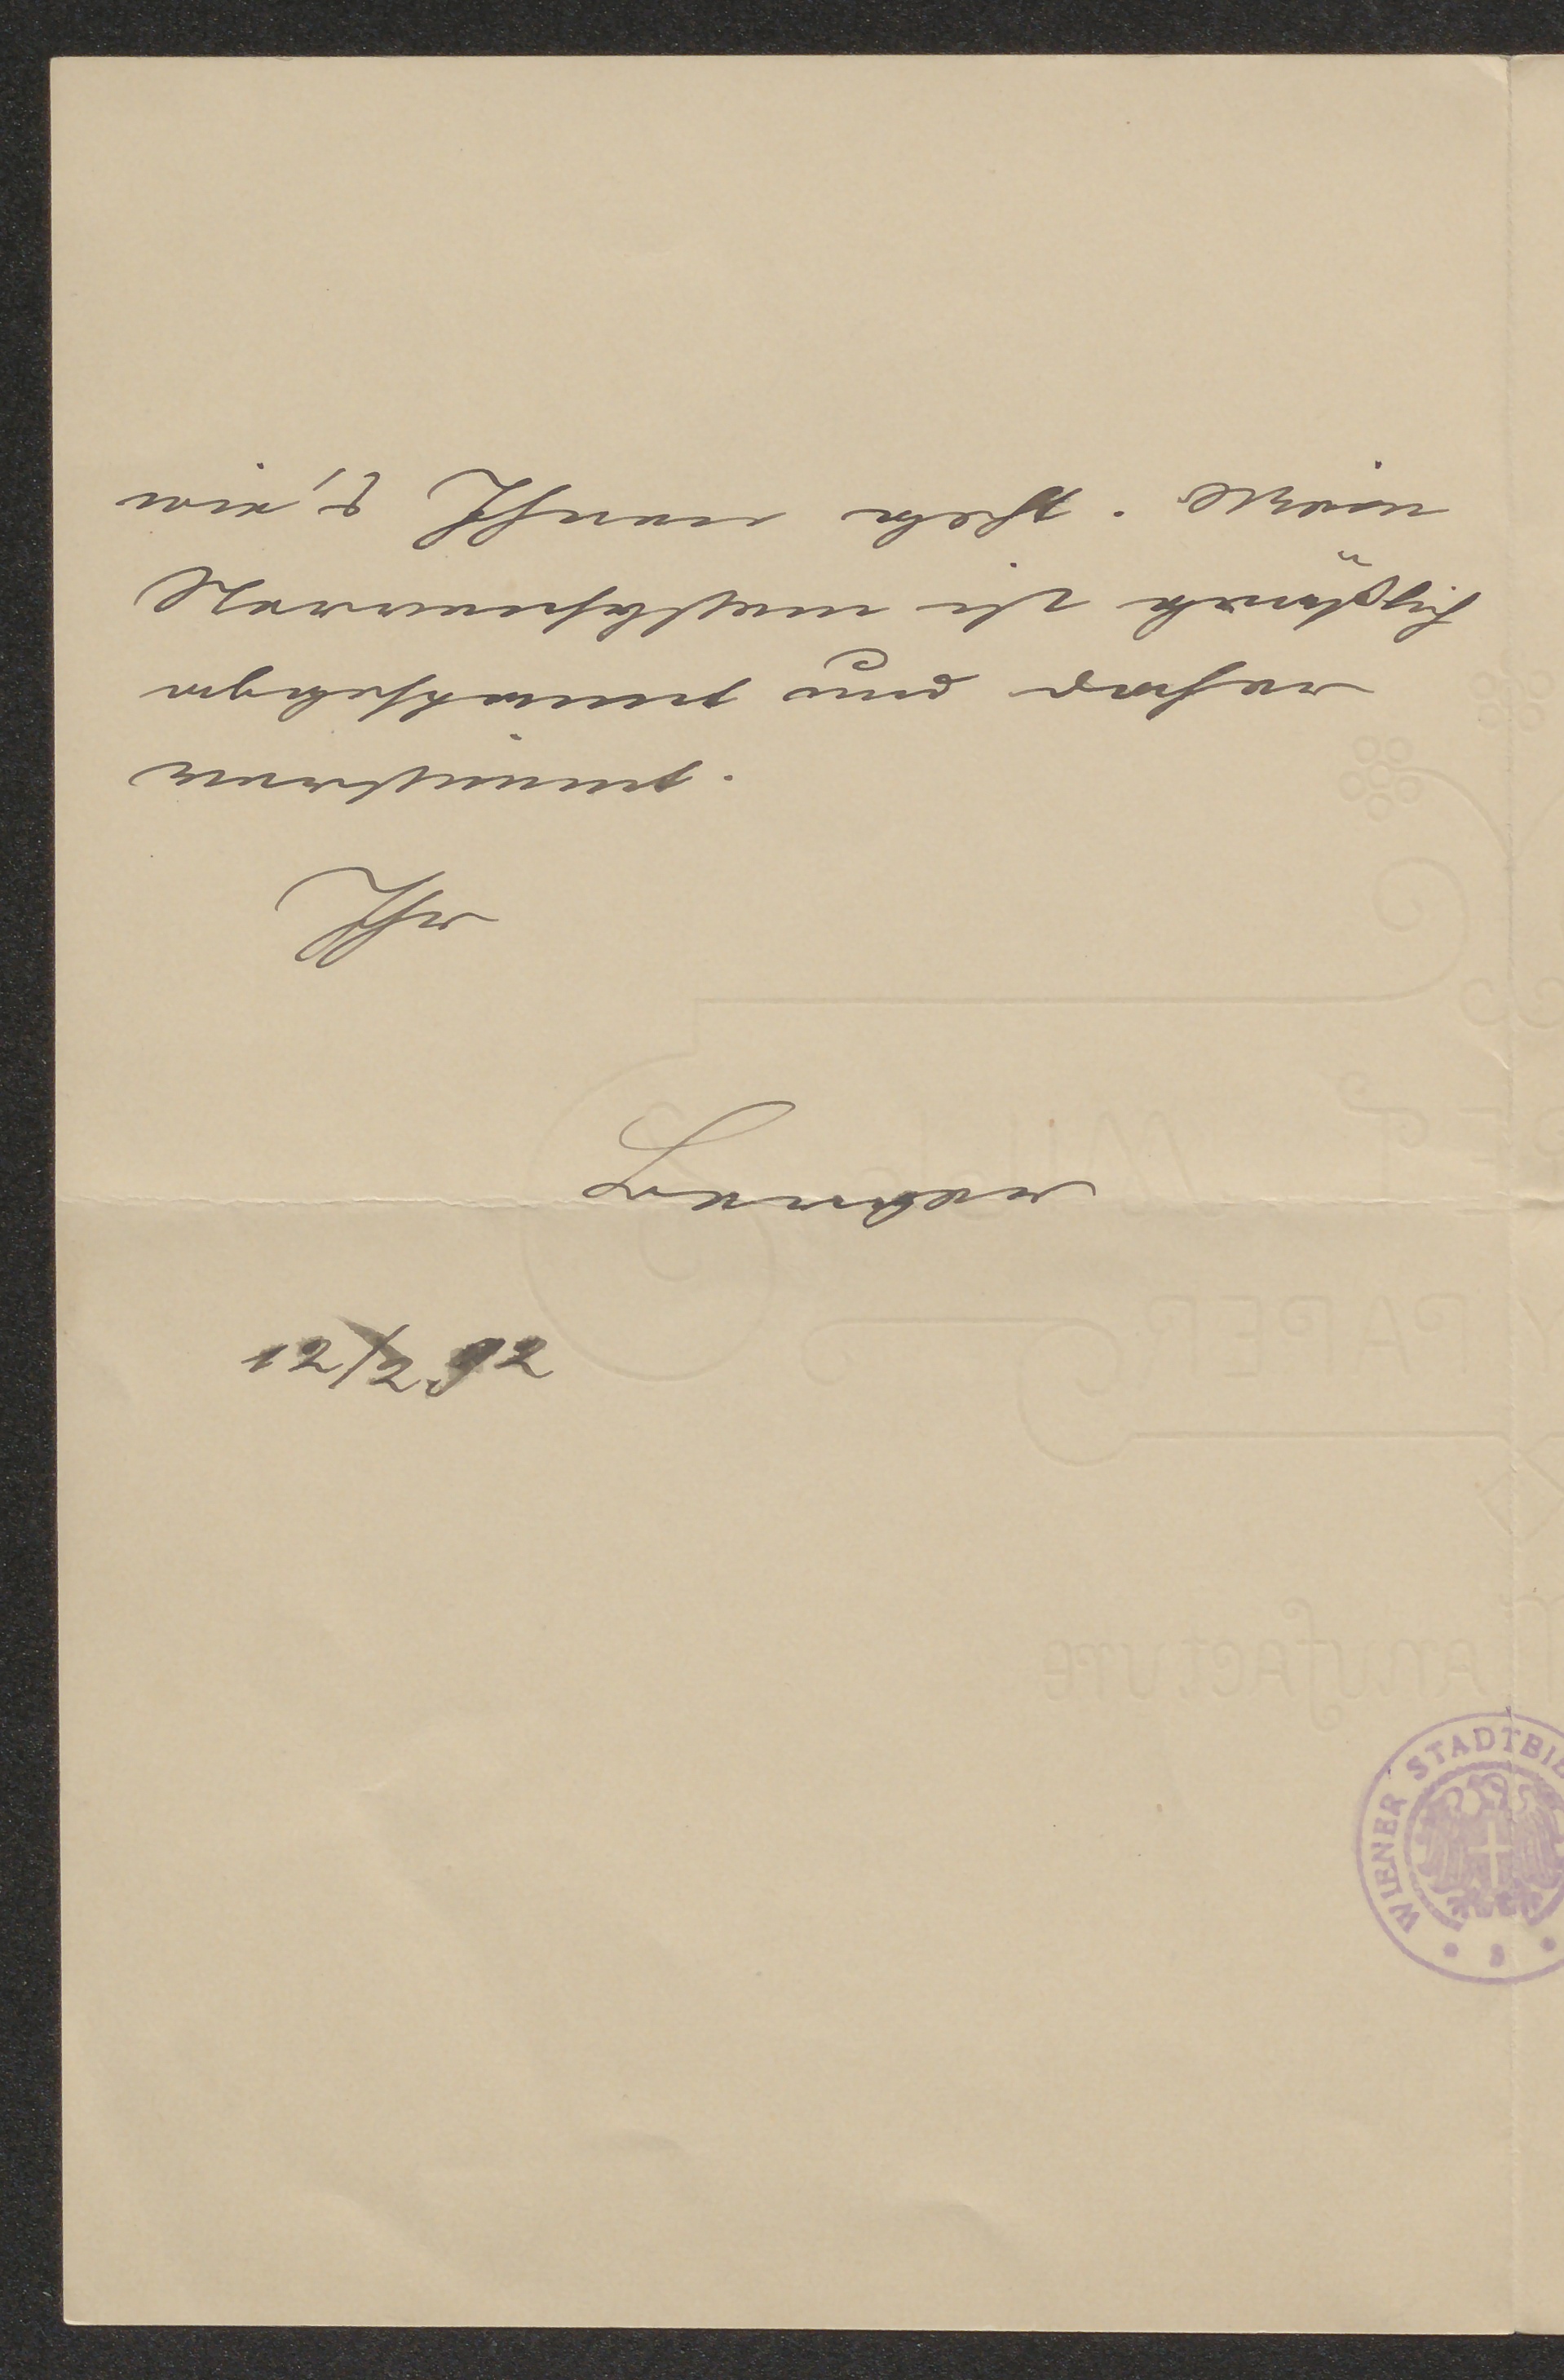 wie's Ihnen geht. Mein
Nervensystem ist
abgespannt und daher
verstimmt.
Ihr
12/2 92
PAPER
WIENER STADTBI